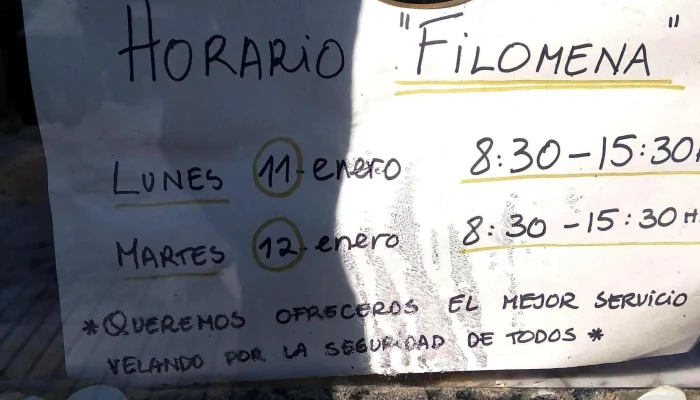 HORARIO "FILOMENA"
LUNES 11 enero 8:30-15:30H
MARTES 12 enero 8:30-15:30H
*QUEREMOS OFRECEROS EL MEJOR SERVICIO
VELANDO POR LA SEGURIDAD DE TODOS*